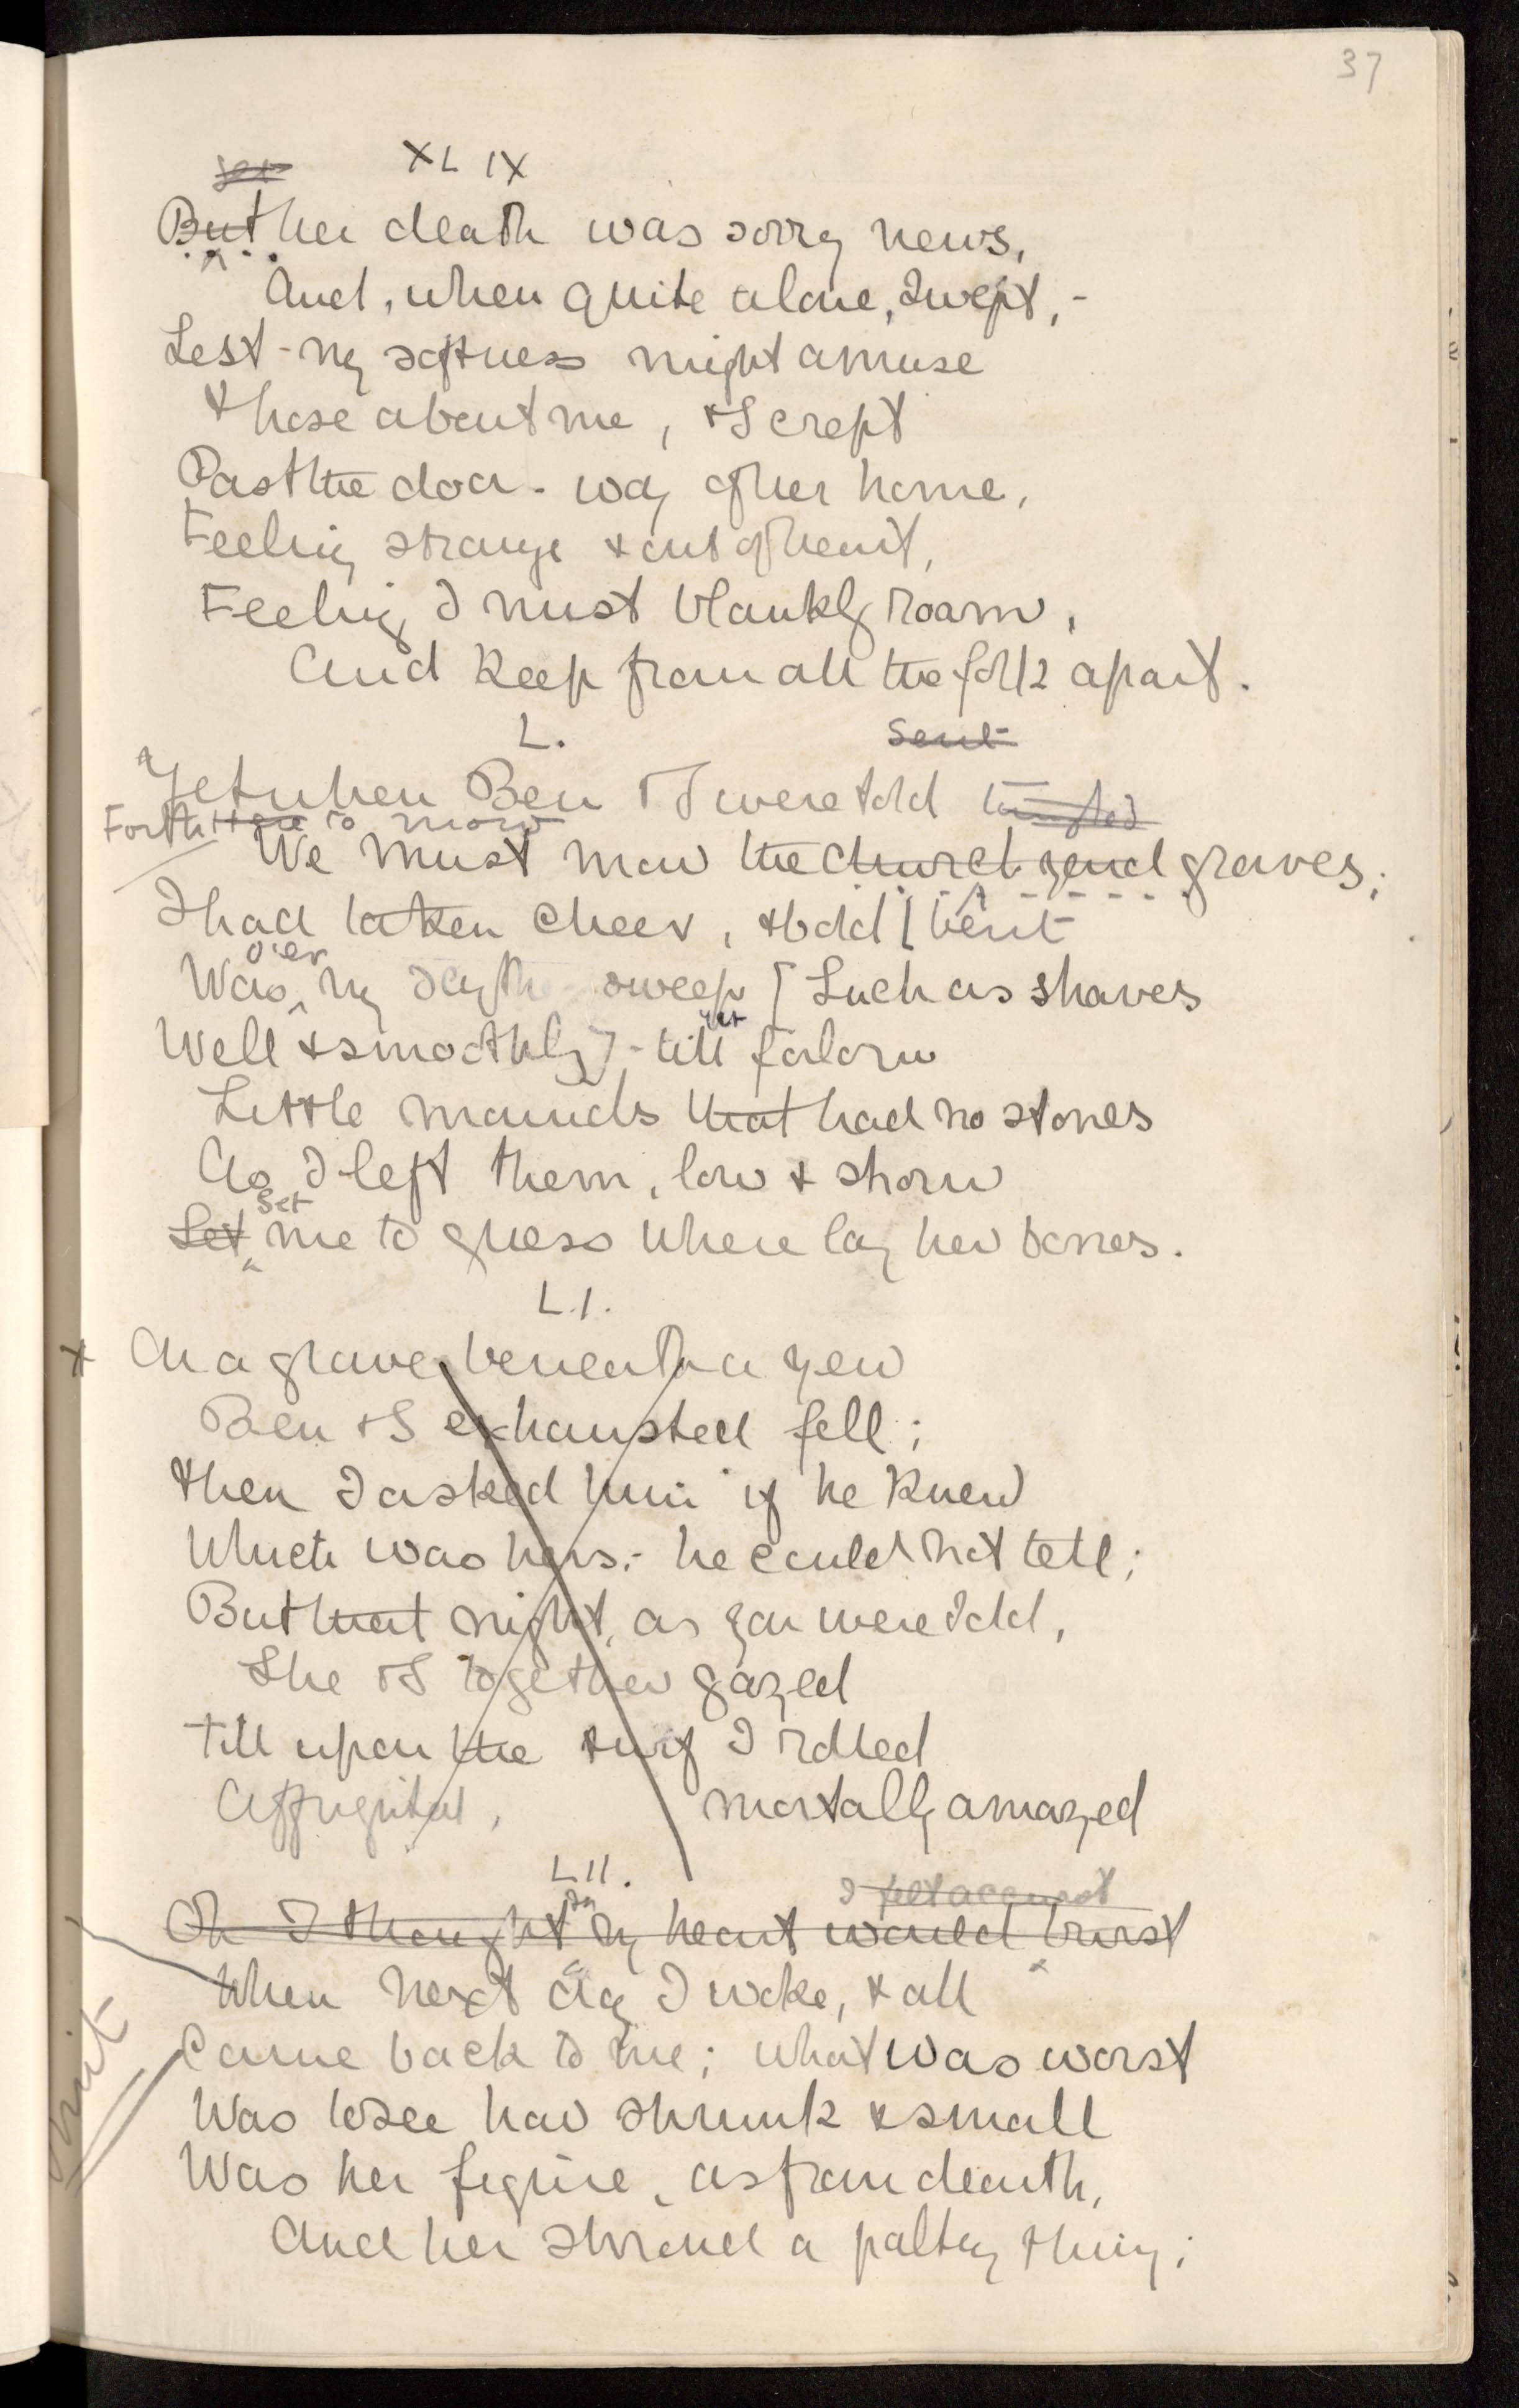 37
XLIX
But her death was sorry news,
And, when quite alone, I wept, -
Lest my softness might amuse
Those about me, & I crept
Past the door-way of her home,
Feeling strange & out of heart,
Feeling I must blankly roam,
And keep from all the folk apart.
L.
sent
Yet when Ben & I were told
Forth to mow
We must mow the churchyard graves;
I had taken cheer, & bold [bent
o'er
Was my scythe-sweep [Such as shaves
yet
Well & smoothly] - till forlorn
Little mounds that had no stones
As I left them, low & shorn
set
Let me to guess where lay her bones.
LI.
x On a grave beneath a yew
Ben & I exhausted fell;
Then I asked him if he knew
Which was hers:- he could not tell;
But that night, as you were told,
She & I together gazed
Till upon the turf I rolled
Affrighted, mortally amazed
LII.
I felt accurst
Oh I thought my heart would burst
When next day I woke, & all
Came back to me; what was worst
Was to see how shrunk & small
Was her figure, as from dearth,
And her shroud a paltry thing;